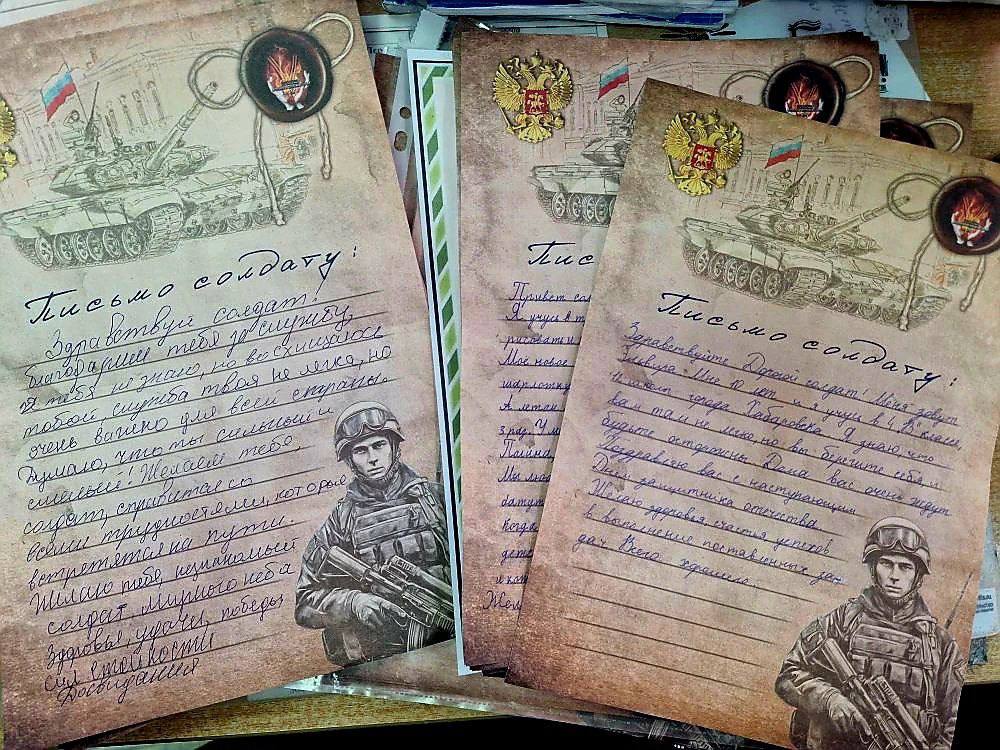 Письмо солдату:
Здравствуй солдат!
благодарим тебя за службу,
Я тебя не знаю, но восхищаюсь
тобой служба твоя не легка, но
очень важна для всей страны.
Думаю, что ты сильный и
смелый! Желаем тебе,
солдат, справится со
всеми трудностями, которые
встретятся на пути.
Желаю тебе, незнакомый
солдат мирного неба
Здоровья, удачи, победы
сил стойкости
Досвидания
Пис
Привет сол
Я учусь в т
рисовать и
Мое новое
шарлотку
А летом
Мы люб
когда
дете
Жела
Письмо солдату:
Здравствуйте Дорогой солдат! Меня зовут
Мне 10 лет и я учусь в 4 "В" классе,
города Хабаровска Я знаю, что
вам там не легко, но вы берегите себя и
будьте осторожны Дома вас очень ждут
Поздравляю вас с наступающим
Днём защитника отечества
Желаю здоровья счастья успехов
в выполнение поставленных зан
дач Всего хорошего